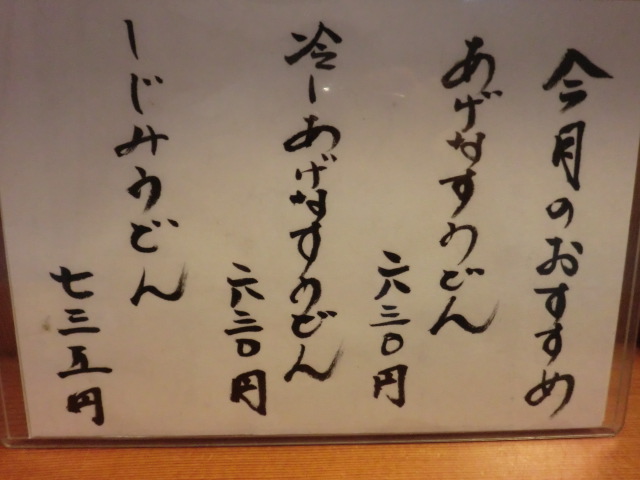 今月のおすすめ
あげなすうどん
六三〇円
冷しあげなすうどん
六三〇円
しじみうどん
七三五円